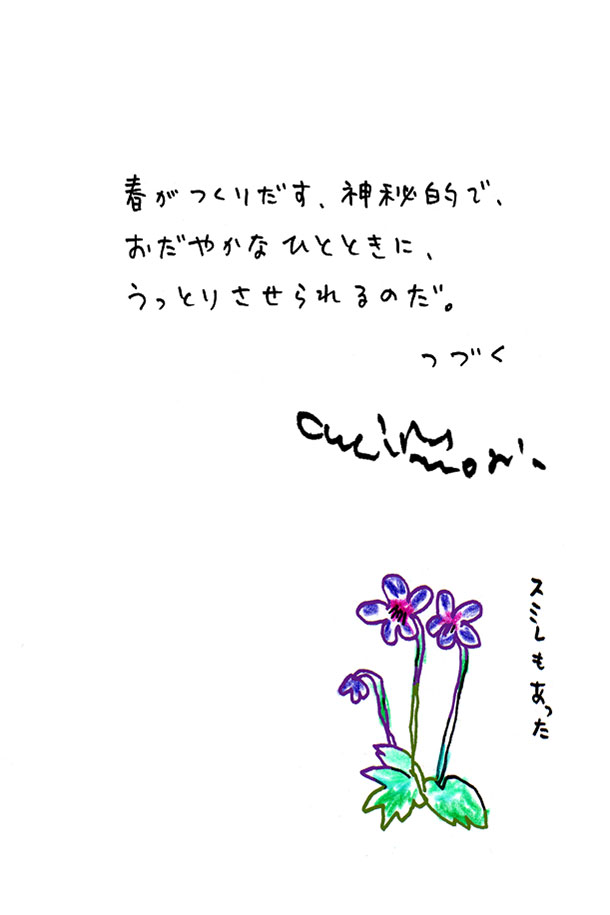 春がつくりだす、神秘的で、
おだやかなひとときに、
うっとりさせられるのだ。
つづく
スミレもあった